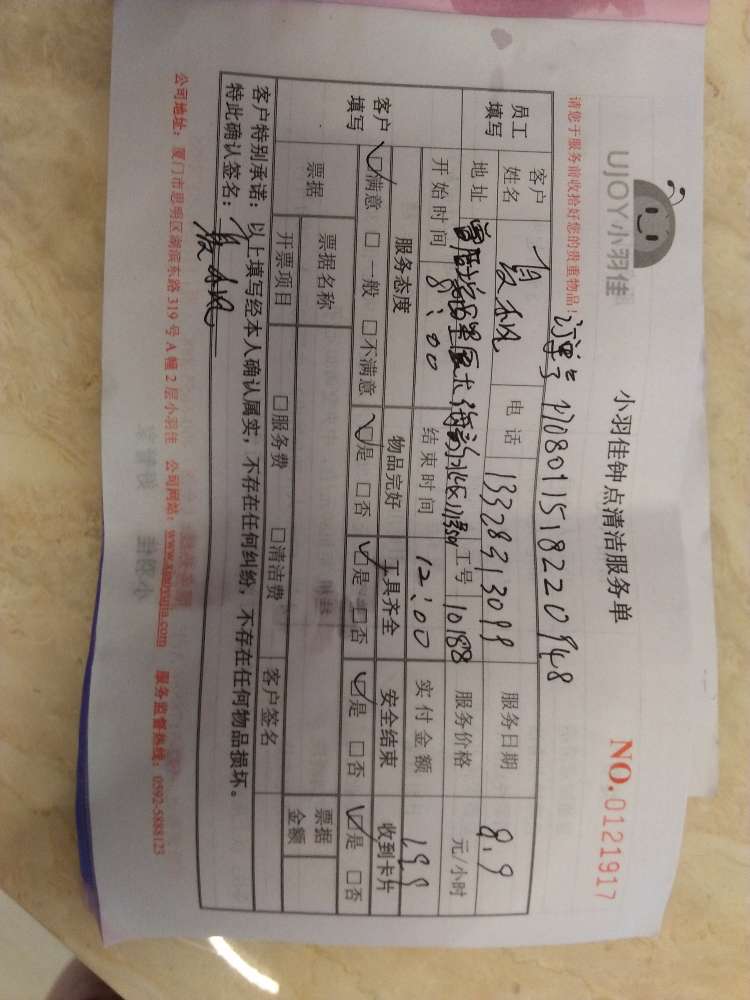 UJOY小羽佳
小羽佳钟点清洁服务单
NO.0121917
请您于服务前收拾好您的贵重物品!
订单号 1708011518220948
员工填写 客户姓名 电话 13328313099 服务日期 8.9
地址 工号 10188 服务价格 元/小时
开始时间 8:00 结束时间 12:00 实付金额 199
客户填写 服务态度 物品完好 工具齐全 安全结束 收到卡片
☑满意 □一般 □不满意 ☑是 □否 ☑是 □否 ☑是 □否 ☑是 □否
票据 票据名称 客户签名 票据金额
开票项目 □服务费 □清洁费
客户特别承诺:以上填写经本人确认属实,不存在任何纠纷,不存在任何物品损坏。
特此确认签名:
公司地址:厦门市思明区湖滨东路319号A幢2层小羽佳 公司网站:www.xiaoyujia.com 服务监督热线:0592-5888123